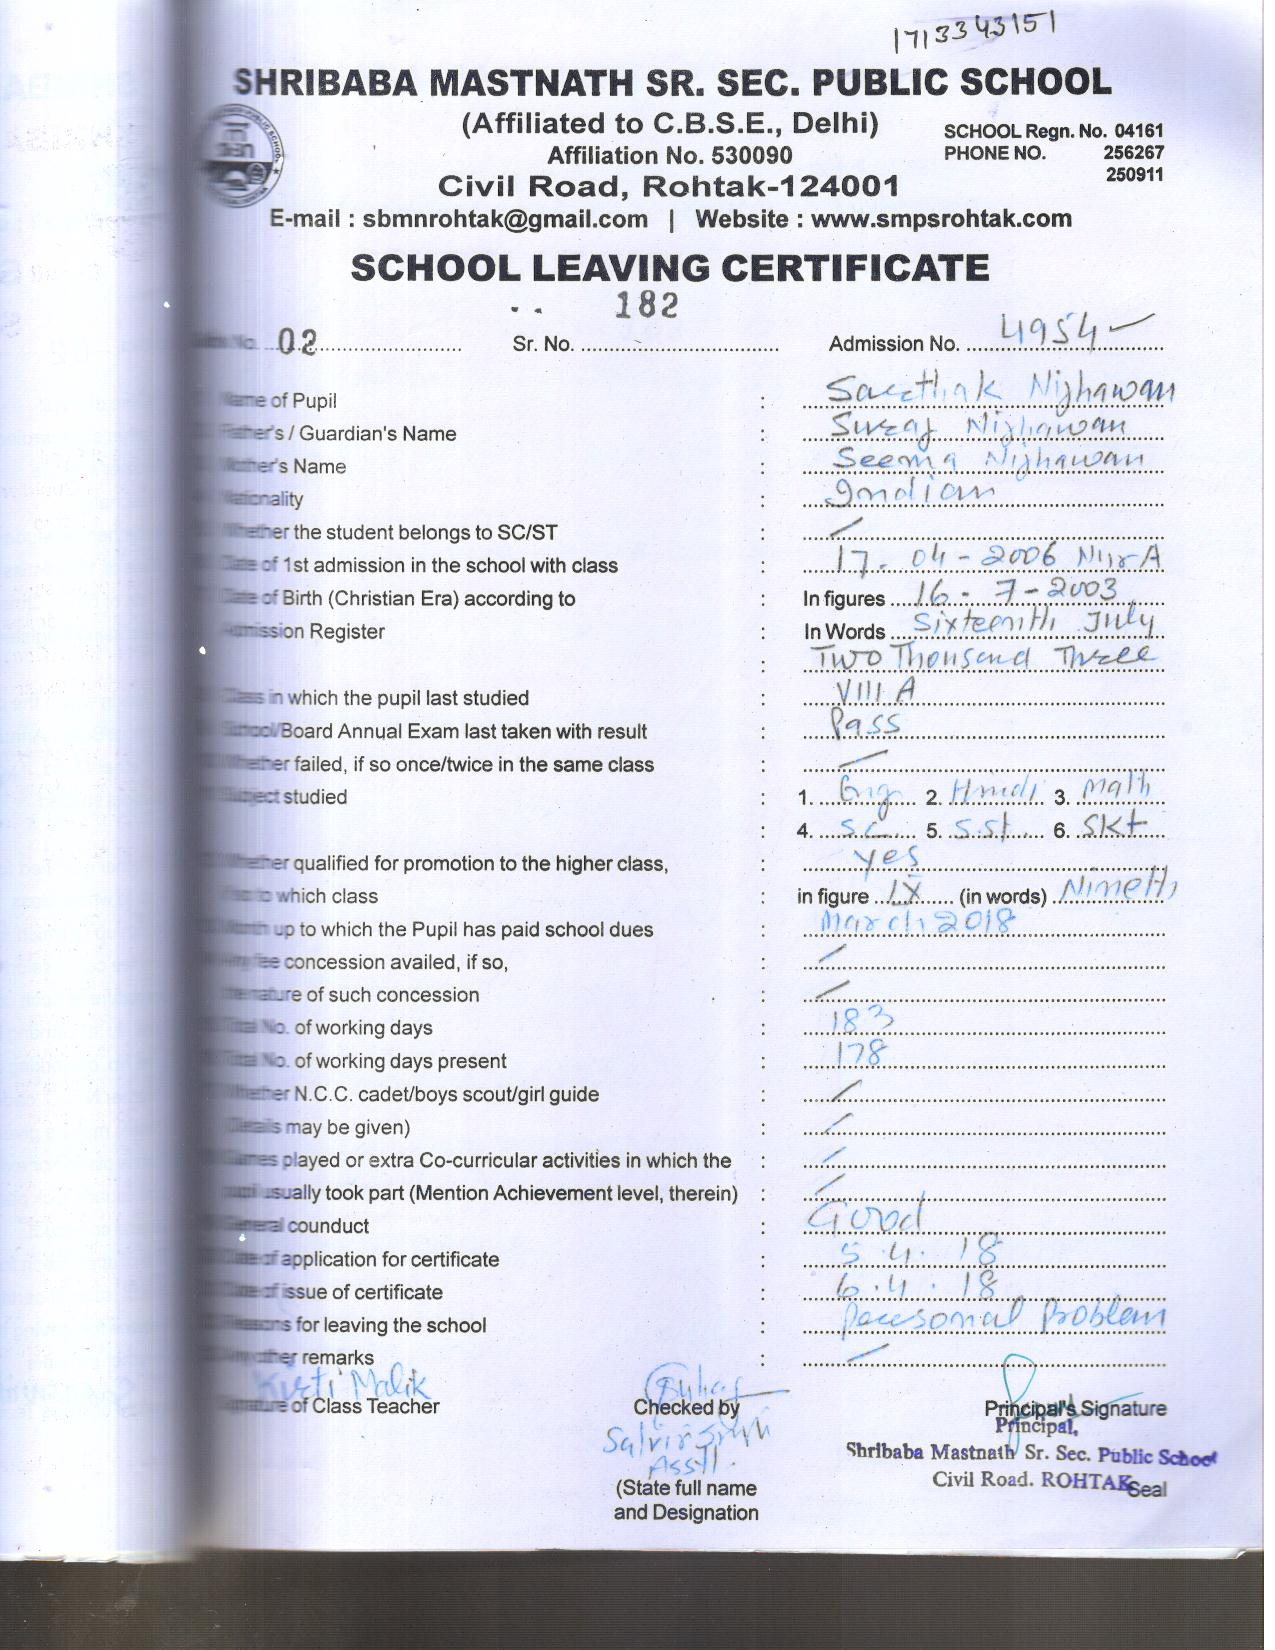 1713343151
SHRIBABA MASTNATH SR. SEC. PUBLIC SCHOOL
(Affiliated to C.B.S.E., Delhi)
SCHOOL Regn. No. 04161
Affiliation No. 530090
PHONE NO. 256267
250911
Civil Road, Rohtak-124001
E-mail : sbmnrohtak@gmail.com | Website : www.smpsrohtak.com
SCHOOL LEAVING CERTIFICATE
182
No. 02 Sr. No. Admission No. 4954
Name of Pupil : Sarthak Nijhawan
Father's / Guardian's Name : Suraj Nijhawan
Mother's Name : Seema Nijhawan
Nationality : Indian
Whether the student belongs to SC/ST :
Date of 1st admission in the school with class : 17-04-2006 Nur A
Date of Birth (Christian Era) according to : In figures 16-7-2003
Admission Register : In Words Sixteenth July
: Two Thousand Three
Class in which the pupil last studied : VIII A
School/Board Annual Exam last taken with result : Pass
Whether failed, if so once/twice in the same class :
Subject studied : 1. Eng 2. Hindi 3. Math
: 4. Sc 5. S.St 6. Skt
Whether qualified for promotion to the higher class, : Yes
to which class : in figure IX (in words) Nineth
Month up to which the Pupil has paid school dues : March 2018
Any fee concession availed, if so, :
the nature of such concession :
Total No. of working days : 183
Total No. of working days present : 178
Whether N.C.C. cadet/boys scout/girl guide :
(Details may be given) :
Games played or extra Co-curricular activities in which the :
pupil usually took part (Mention Achievement level, therein) :
General counduct : Good
Date of application for certificate : 5.4.18
Date of issue of certificate : 6.4.18
Reasons for leaving the school : Peresonal Problem
Any other remarks :
Kirti Malik
Signature of Class Teacher Checked by Principal's Signature
Principal,
Asstt.
Shribaba Mastnath Sr. Sec. Public School
Civil Road. ROHTAK
Seal
(State full name
and Designation